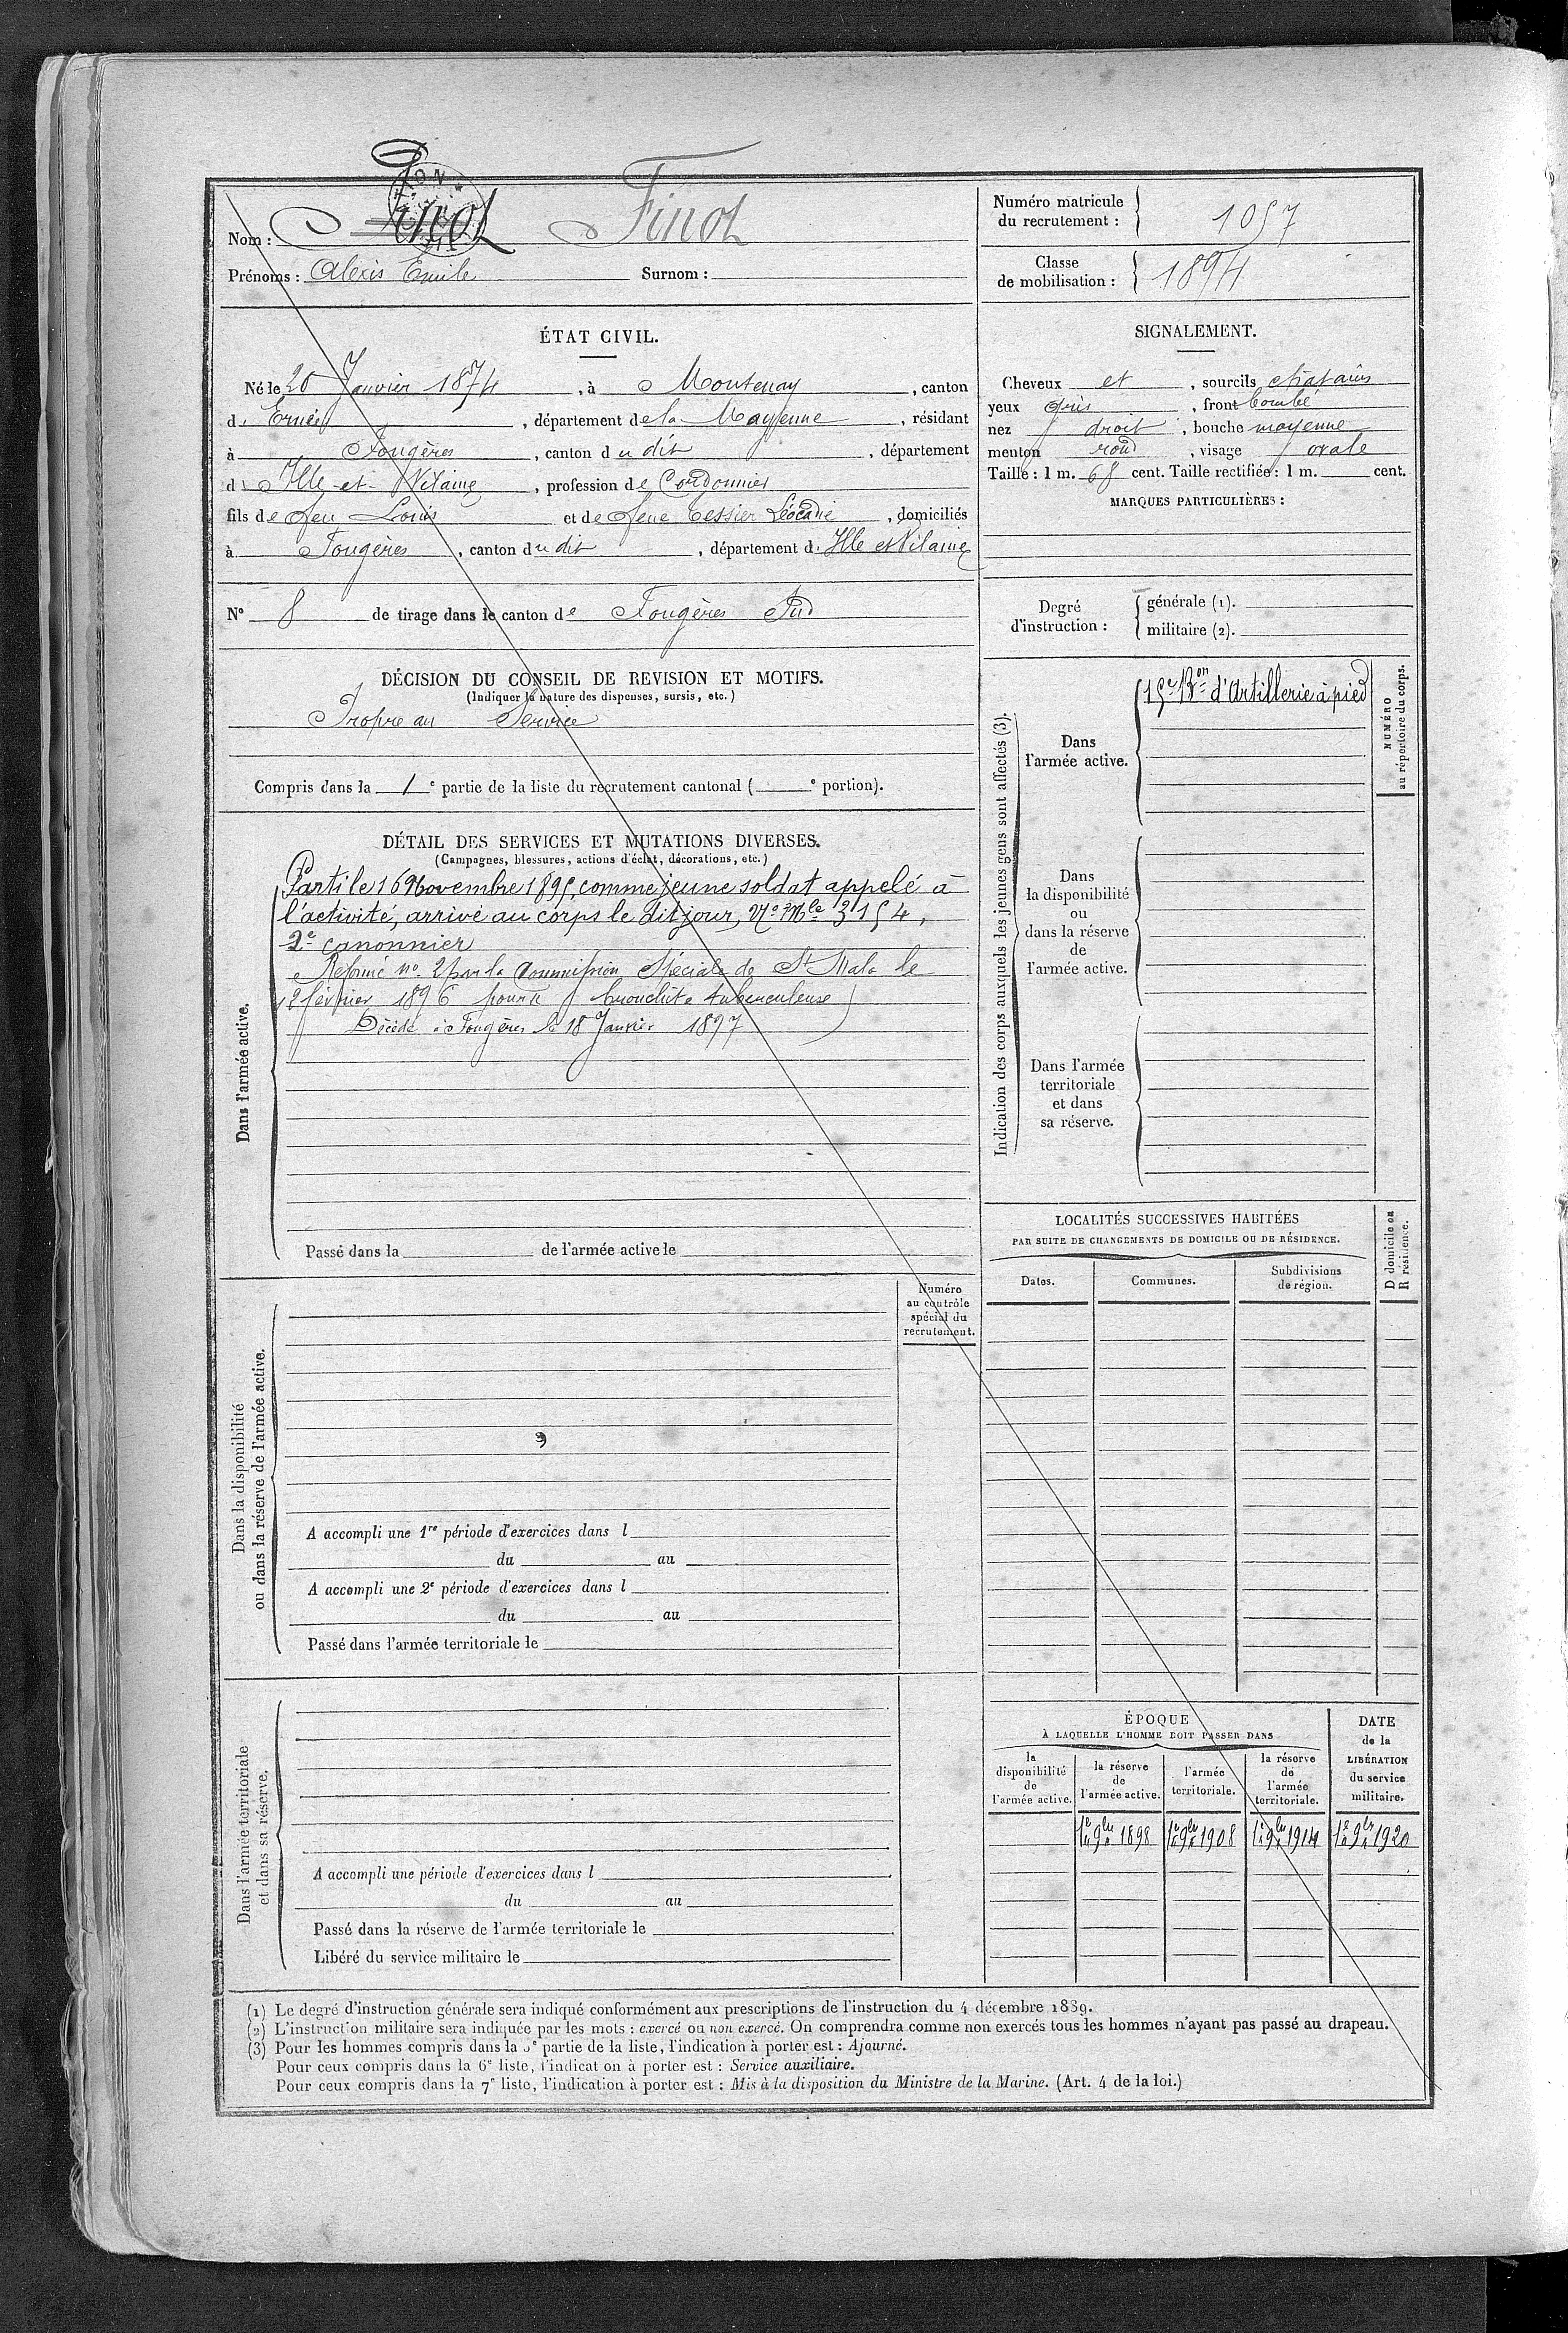 Nom : Finot
Prénoms : Alexis Emile Surnom :
Numéro matricule du recrutement : 1057
Classe de mobilisation : 1894
ÉTAT CIVIL.
Né le 20 Janvier 1874, à Montenay, canton
d'Ernée, département de la Mayenne, résidant
à Fougères, canton du dit, département
d Ille-et-Vilaine, profession de Cordonnier
fils de feu Louis et de feue Tessier Léocadie, domiciliés
à Fougères, canton du dit, département d. Ille et Vilaine
N° 8 de tirage dans le canton de Fougères Sud
DÉCISION DU CONSEIL DE REVISION ET MOTIFS.
(Indiquer la nature des dispenses, sursis, etc.)
Propre au Service
Compris dans la 1e partie de la liste du recrutement cantonal ( e portion).
SIGNALEMENT.
Cheveux et, sourcils chatains
yeux gris, front bombé
nez droit, bouche moyenne
menton rond, visage ovale
Taille : 1 m. 68 cent. Taille rectifiée : 1 m. cent.
MARQUES PARTICULIÈRES :
Degré d'instruction :
générale (1).
militaire (2).
DÉTAIL DES SERVICES ET MUTATIONS DIVERSES.
(Campagnes, blessures, actions d'éclat, décorations, etc.)
Dans l'armée active.
Parti le 16 Novembre 1895, comme jeune soldat appelé à
l'activité, arrivé au corps le dit jour, No Mle 3154,
2e canonnier
Réformé no 2 par la Commission Spéciale de St Malo le
12 février 1896 pour bronchite tuberculeuse
Décédé à Fougères le 18 Janvier 1897
Passé dans la de l'armée active le
Indication des corps auxquels les jeunes gens sont affectés (3).
Dans l'armée active.
15e Bon d'Artillerie à pied
NUMÉRO au répertoire du corps.
Dans la disponibilité ou dans la réserve de l'armée active.
Dans l'armée territoriale et dans sa réserve.
LOCALITÉS SUCCESSIVES HABITÉES
PAR SUITE DE CHANGEMENTS DE DOMICILE OU DE RÉSIDENCE.
Dates.
Communes.
Subdivisions de région.
D domicile ou R résidence.
Dans la disponibilité ou dans la réserve de l'armée active.
Numéro au contrôle spécial du recrutement.
A accompli une 1re période d'exercices dans l
du au
A accompli une 2e période d'exercices dans l
du au
Passé dans l'armée territoriale le
Dans l'armée territoriale et dans sa réserve.
A accompli une période d'exercices dans l
du au
Passé dans la réserve de l'armée territoriale le
Libéré du service militaire le
ÉPOQUE
À LAQUELLE L'HOMME DOIT PASSER DANS
la disponibilité de l'armée active.
la réserve de l'armée active.
l'armée territoriale.
la réserve de l'armée territoriale.
DATE de la LIBÉRATION du service militaire.
1er 9bre 1898
1er 9bre 1908
1er 9bre 1914
1er 9bre 1920
(1) Le degré d'instruction générale sera indiqué conformément aux prescriptions de l'instruction du 4 décembre 1889.
(2) L'instruction militaire sera indiquée par les mots : exercé ou non exercé. On comprendra comme non exercés tous les hommes n'ayant pas passé au drapeau.
(3) Pour les hommes compris dans la 5e partie de la liste, l'indication à porter est : Ajourné.
Pour ceux compris dans la 6e liste, l'indication à porter est : Service auxiliaire.
Pour ceux compris dans la 7e liste, l'indication à porter est : Mis à la disposition du Ministre de la Marine. (Art. 4 de la loi.)